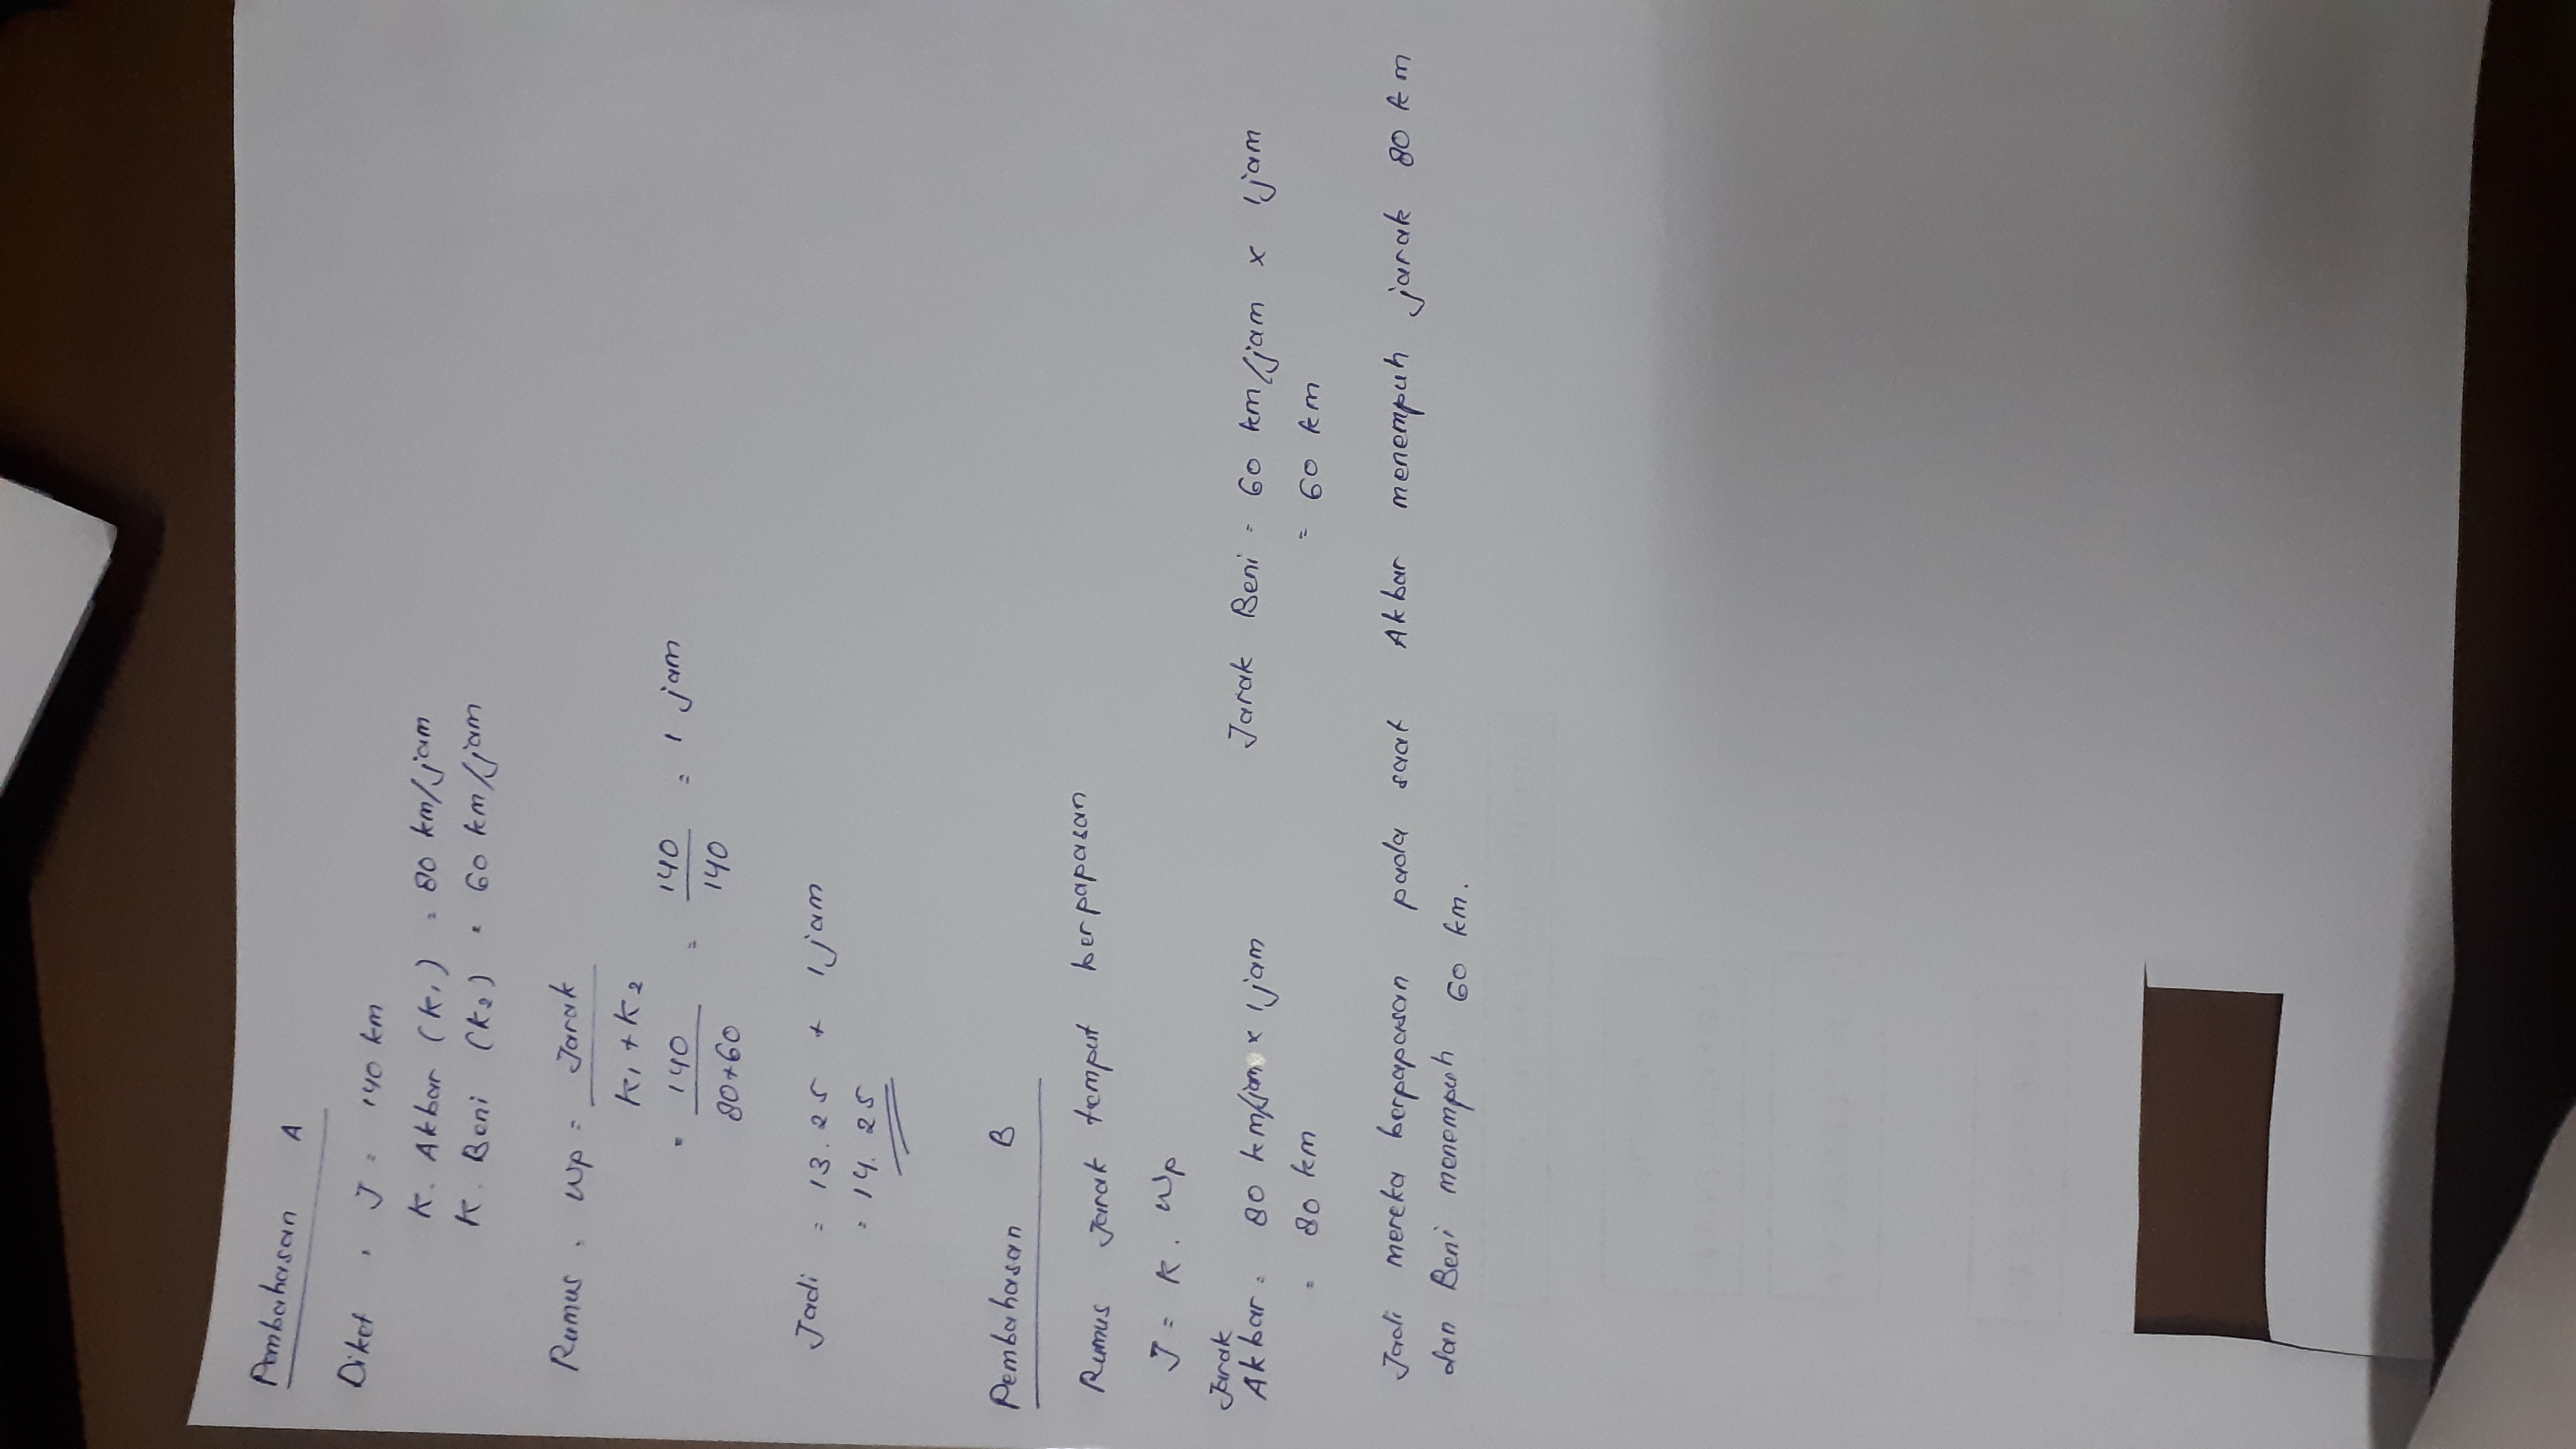 Pembahasan A
Diket : J = 140 km
K. Akbar (K1) = 80 km/jam
K. Beni (K2) = 60 km/jam
Rumus : Wp = Jarak
K1 + K2
= 140 = 140 = 1 jam
80+60 140
Jadi = 13.25 + 1 jam
= 14.25
Pembahasan B
Rumus Jarak tempat berpapasan
J = K . Wp
Jarak
Akbar = 80 km/jam x 1 jam Jarak Beni = 60 km/jam x 1 jam
= 80 km = 60 km
Jadi mereka berpapasan pada saat Akbar menempuh jarak 80 km
dan Beni menempuh 60 km.